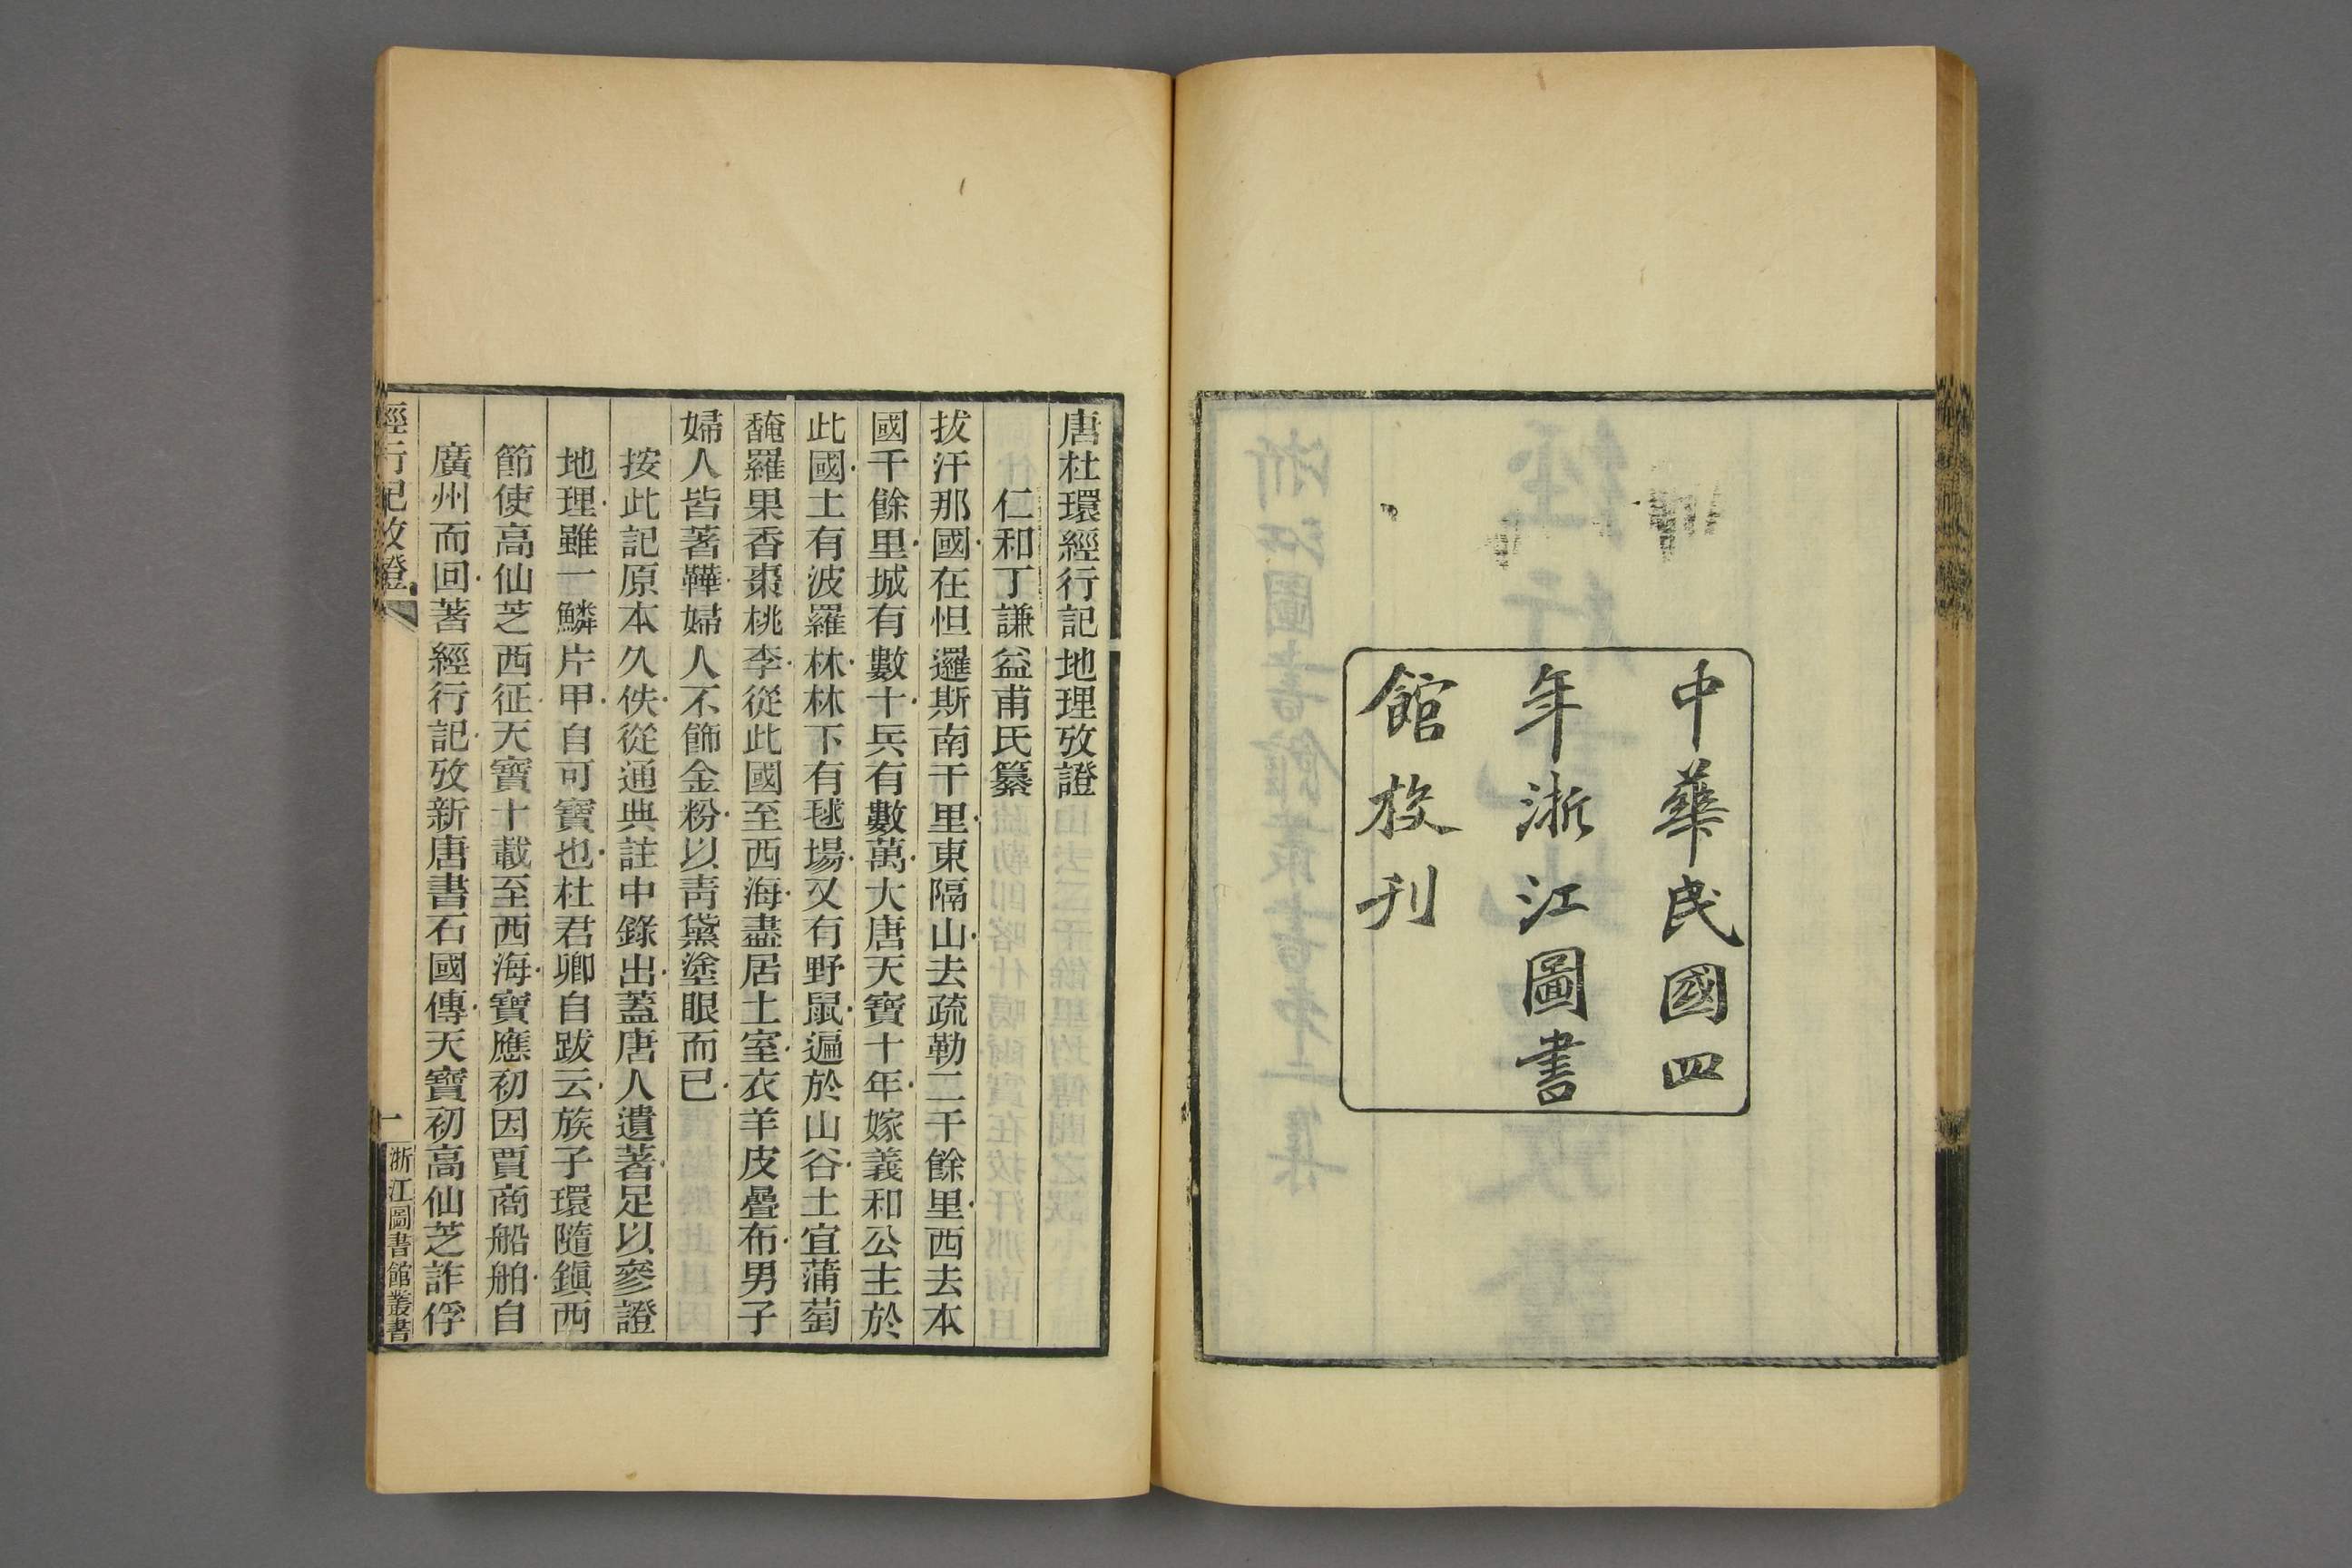 中華民國四
年浙江圖書
館校刊
唐杜環經行記地理攷證
仁和丁謙益甫氏纂
拔汗那國在怛邏斯南千里東隔山去疏勒二千餘里西去本
國千餘里城有數十兵有數萬大唐天寶十年嫁義和公主於
此國土有波羅林林下有毬場又有野鼠遍於山谷土宜蒲萄
馣羅果香棗桃李從此國至西海盡居土室衣羊皮疊布男子
婦人皆著鞾婦人不飾金粉以靑黛塗眼而已
按此記原本久佚從通典註中錄出蓋唐人遺著足以參證
地理雖一鱗片甲自可寶也杜君卿自跋云族子環隨鎭西
節使高仙芝西征天寶十載至西海寶應初因賈商船舶自
廣州而回著經行記攷新唐書石國傳天寶初高仙芝詐俘
經行記攷證
一
浙江圖書館叢書